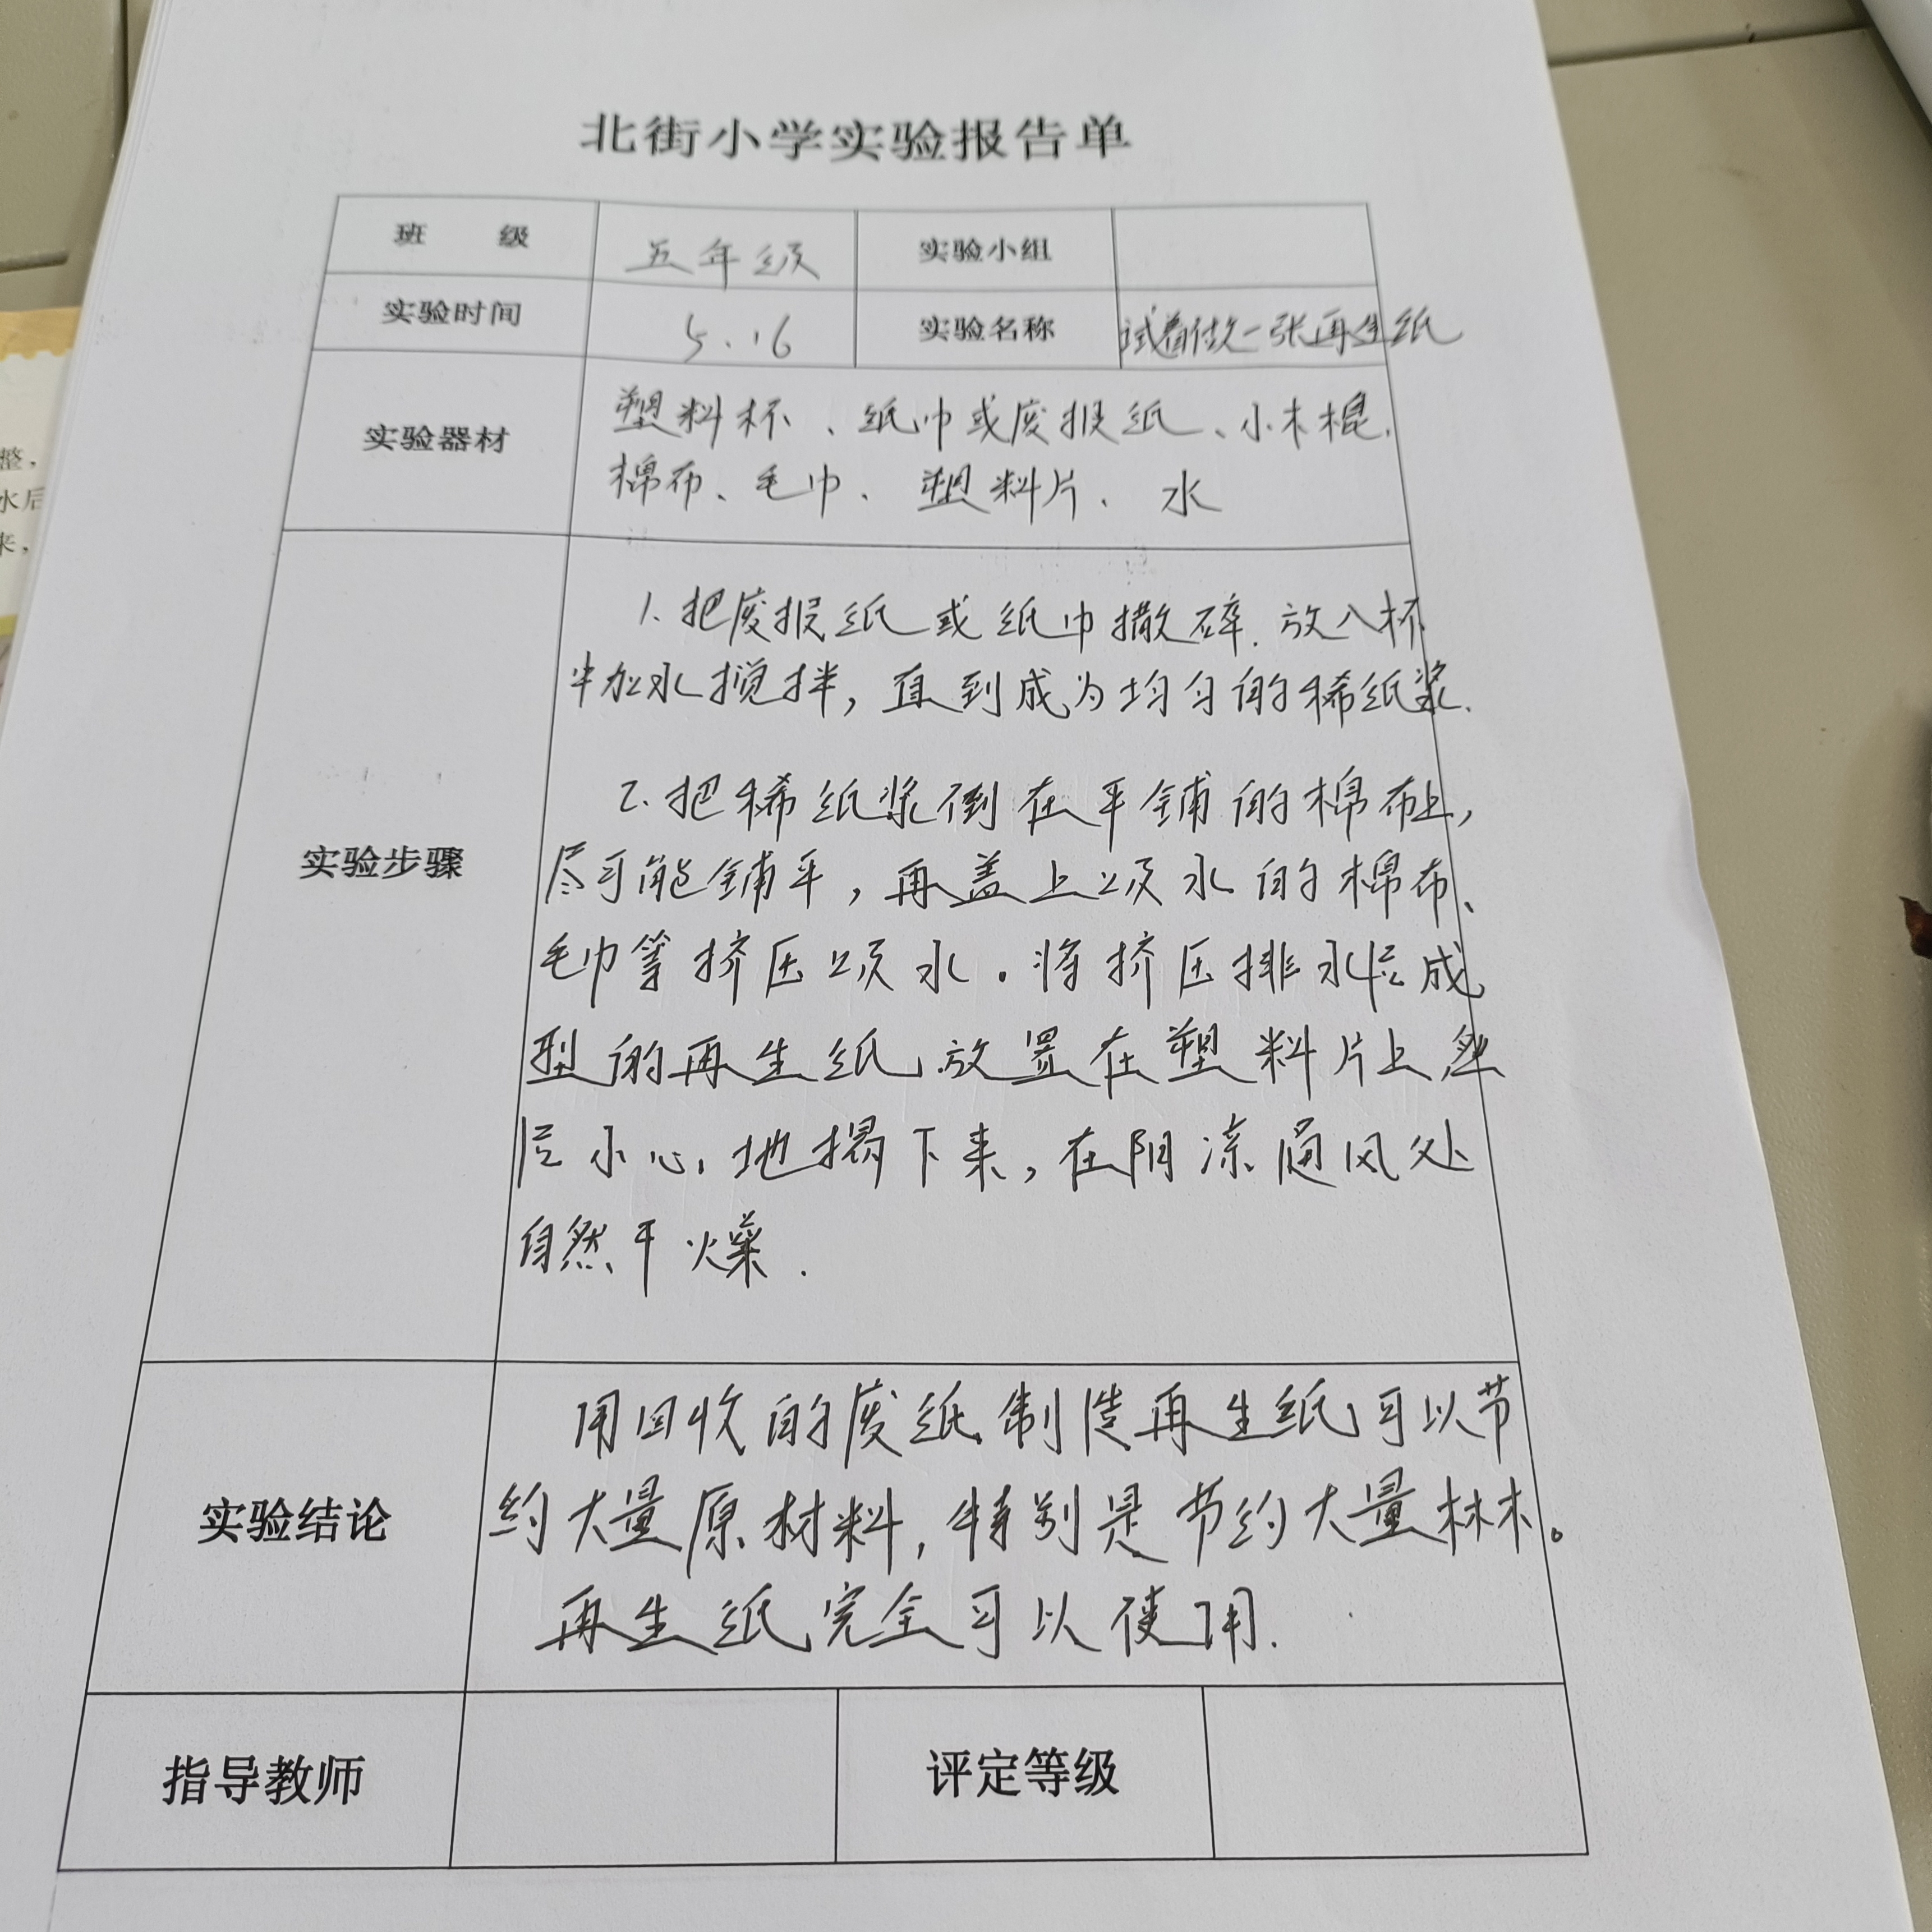 北街小学实验报告单
班 级 五年级 实验小组
实验时间 5.16 实验名称 试着做一张再生纸
实验器材
塑料杯、纸巾或废报纸、小木棍、
棉布、毛巾、塑料片、水
实验步骤
1.把废报纸或纸巾撒碎.放入杯
中加水搅拌,直到成为均匀的稀纸浆.
2.把稀纸浆倒在平铺的棉布上,
尽可能铺平,再盖上吸水的棉布、
毛巾等挤压吸水.将挤压排水后成
型的再生纸放置在塑料片上然
后小心地揭下来,在阴凉通风处
自然干燥.
实验结论
用回收的废纸制造再生纸可以节
约大量原材料,特别是节约大量林木。
再生纸完全可以使用.
指导教师 评定等级
整,
水后
来,